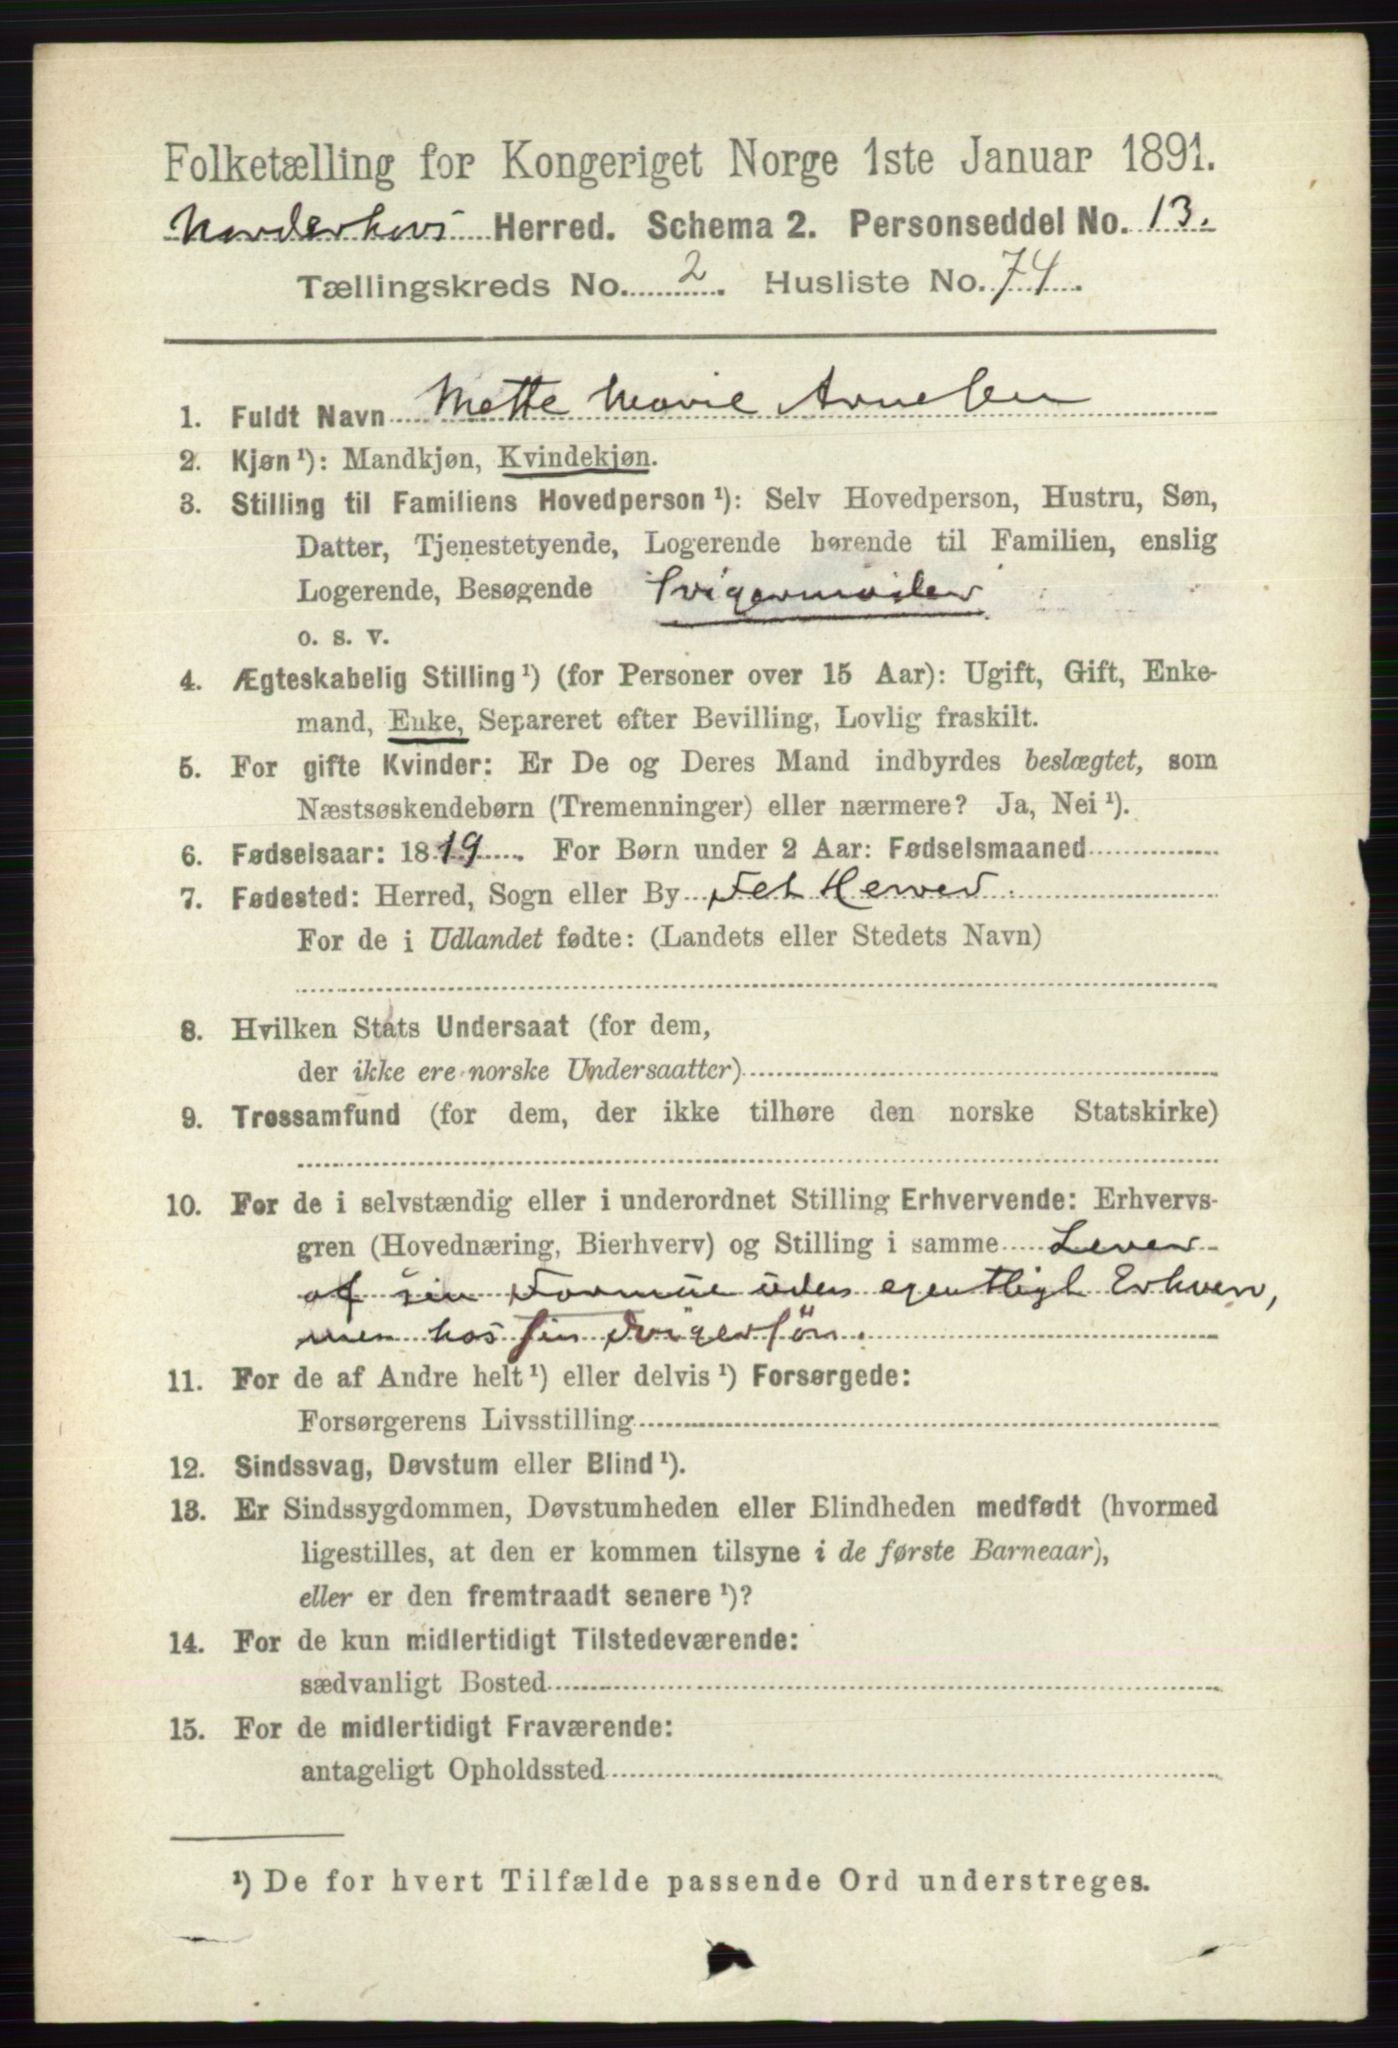 Folketælling for Kongeriget Norge 1ste Januar 1891.
Norderhovs Herred. Schema 2. Personseddel No. 13.
Tællingskreds No. 2. Husliste No. 74.
1. Fuldt Navn Mette Marie Arnesen
2. Kjøn ¹): Mandkjøn, Kvindekjøn.
3. Stilling til Familiens Hovedperson ¹): Selv Hovedperson, Hustru, Søn,
Datter, Tjenestetyende, Logerende hørende til Familien, enslig
Logerende, Besøgende Svigermoder
o. s. v.
4. Ægteskabelig Stilling ¹) (for Personer over 15 Aar): Ugift, Gift, Enke-
mand, Enke, Separeret efter Bevilling, Lovlig fraskilt.
5. For gifte Kvinder: Er De og Deres Mand indbyrdes beslægtet, som
Næstsøskendebørn (Tremenninger) eller nærmere? Ja, Nei ¹).
6. Fødselsaar: 1819. For Børn under 2 Aar: Fødselsmaaned
7. Fødested: Herred, Sogn eller By Fet Herred.
For de i Udlandet fødte: (Landets eller Stedets Navn)
8. Hvilken Stats Undersaat (for dem,
der ikke ere norske Undersaatter)
9. Trossamfund (for dem, der ikke tilhøre den norske Statskirke)
10. For de i selvstændig eller i underordnet Stilling Erhvervende: Erhvervs-
gren (Hovednæring, Bierhverv) og Stilling i samme Lever
af sin Formue uden egentligt Erhverv,
men hos sin Svigersøn.
11. For de af Andre helt ¹) eller delvis ¹) Forsørgede:
Forsørgerens Livsstilling
12. Sindssvag, Døvstum eller Blind ¹).
13. Er Sindssygdommen, Døvstumheden eller Blindheden medfødt (hvormed
ligestilles, at den er kommen tilsyne i de første Barneaar),
eller er den fremtraadt senere ¹)?
14. For de kun midlertidigt Tilstedeværende:
sædvanligt Bosted
15. For de midlertidigt Fraværende:
antageligt Opholdssted
¹) De for hvert Tilfælde passende Ord understreges.